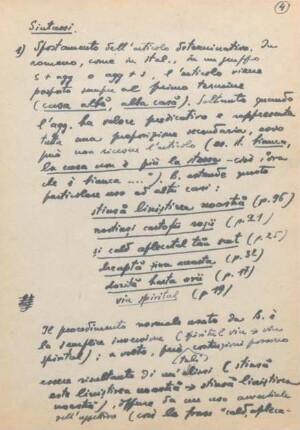 4
Sintassi.
1) Spostamento dell'articolo determinativo. In
romeno, come in ital., in un gruppo
s + agg o agg + s. l'articolo viene
sempre al primo termine
(casa albă, alba casă). Soltanto quando
l'agg. ha valore predicativo e rappresenta
tutta una proposizione secondaria, esso
può non ricevere l'articolo (es. it. bianca,
la casa non è più la stessa
che è bianca ...."). B. estende questo
particolare uso ad altri casi:
stinsă liniștirea noastră (p. 96)
nostinși castapii roșii (p. 21)
și cald aflecetul tău (p. 25)
ziua aceasta (p. 32)
dorită harta (p. 17)
viu spirital (p 19)
Il procedimento normale usato da B. è
la semplice inversione (spirital viu → viu
spirital); a volte, però, costruzioni possono
(tali)
essere risultante di un'elissi (stinsă
este liniștirea noastră → stinsă liniștirea
noastră). Oppure da un uso avverbiale
dell'aggettivo (così la frase "cald aflece-